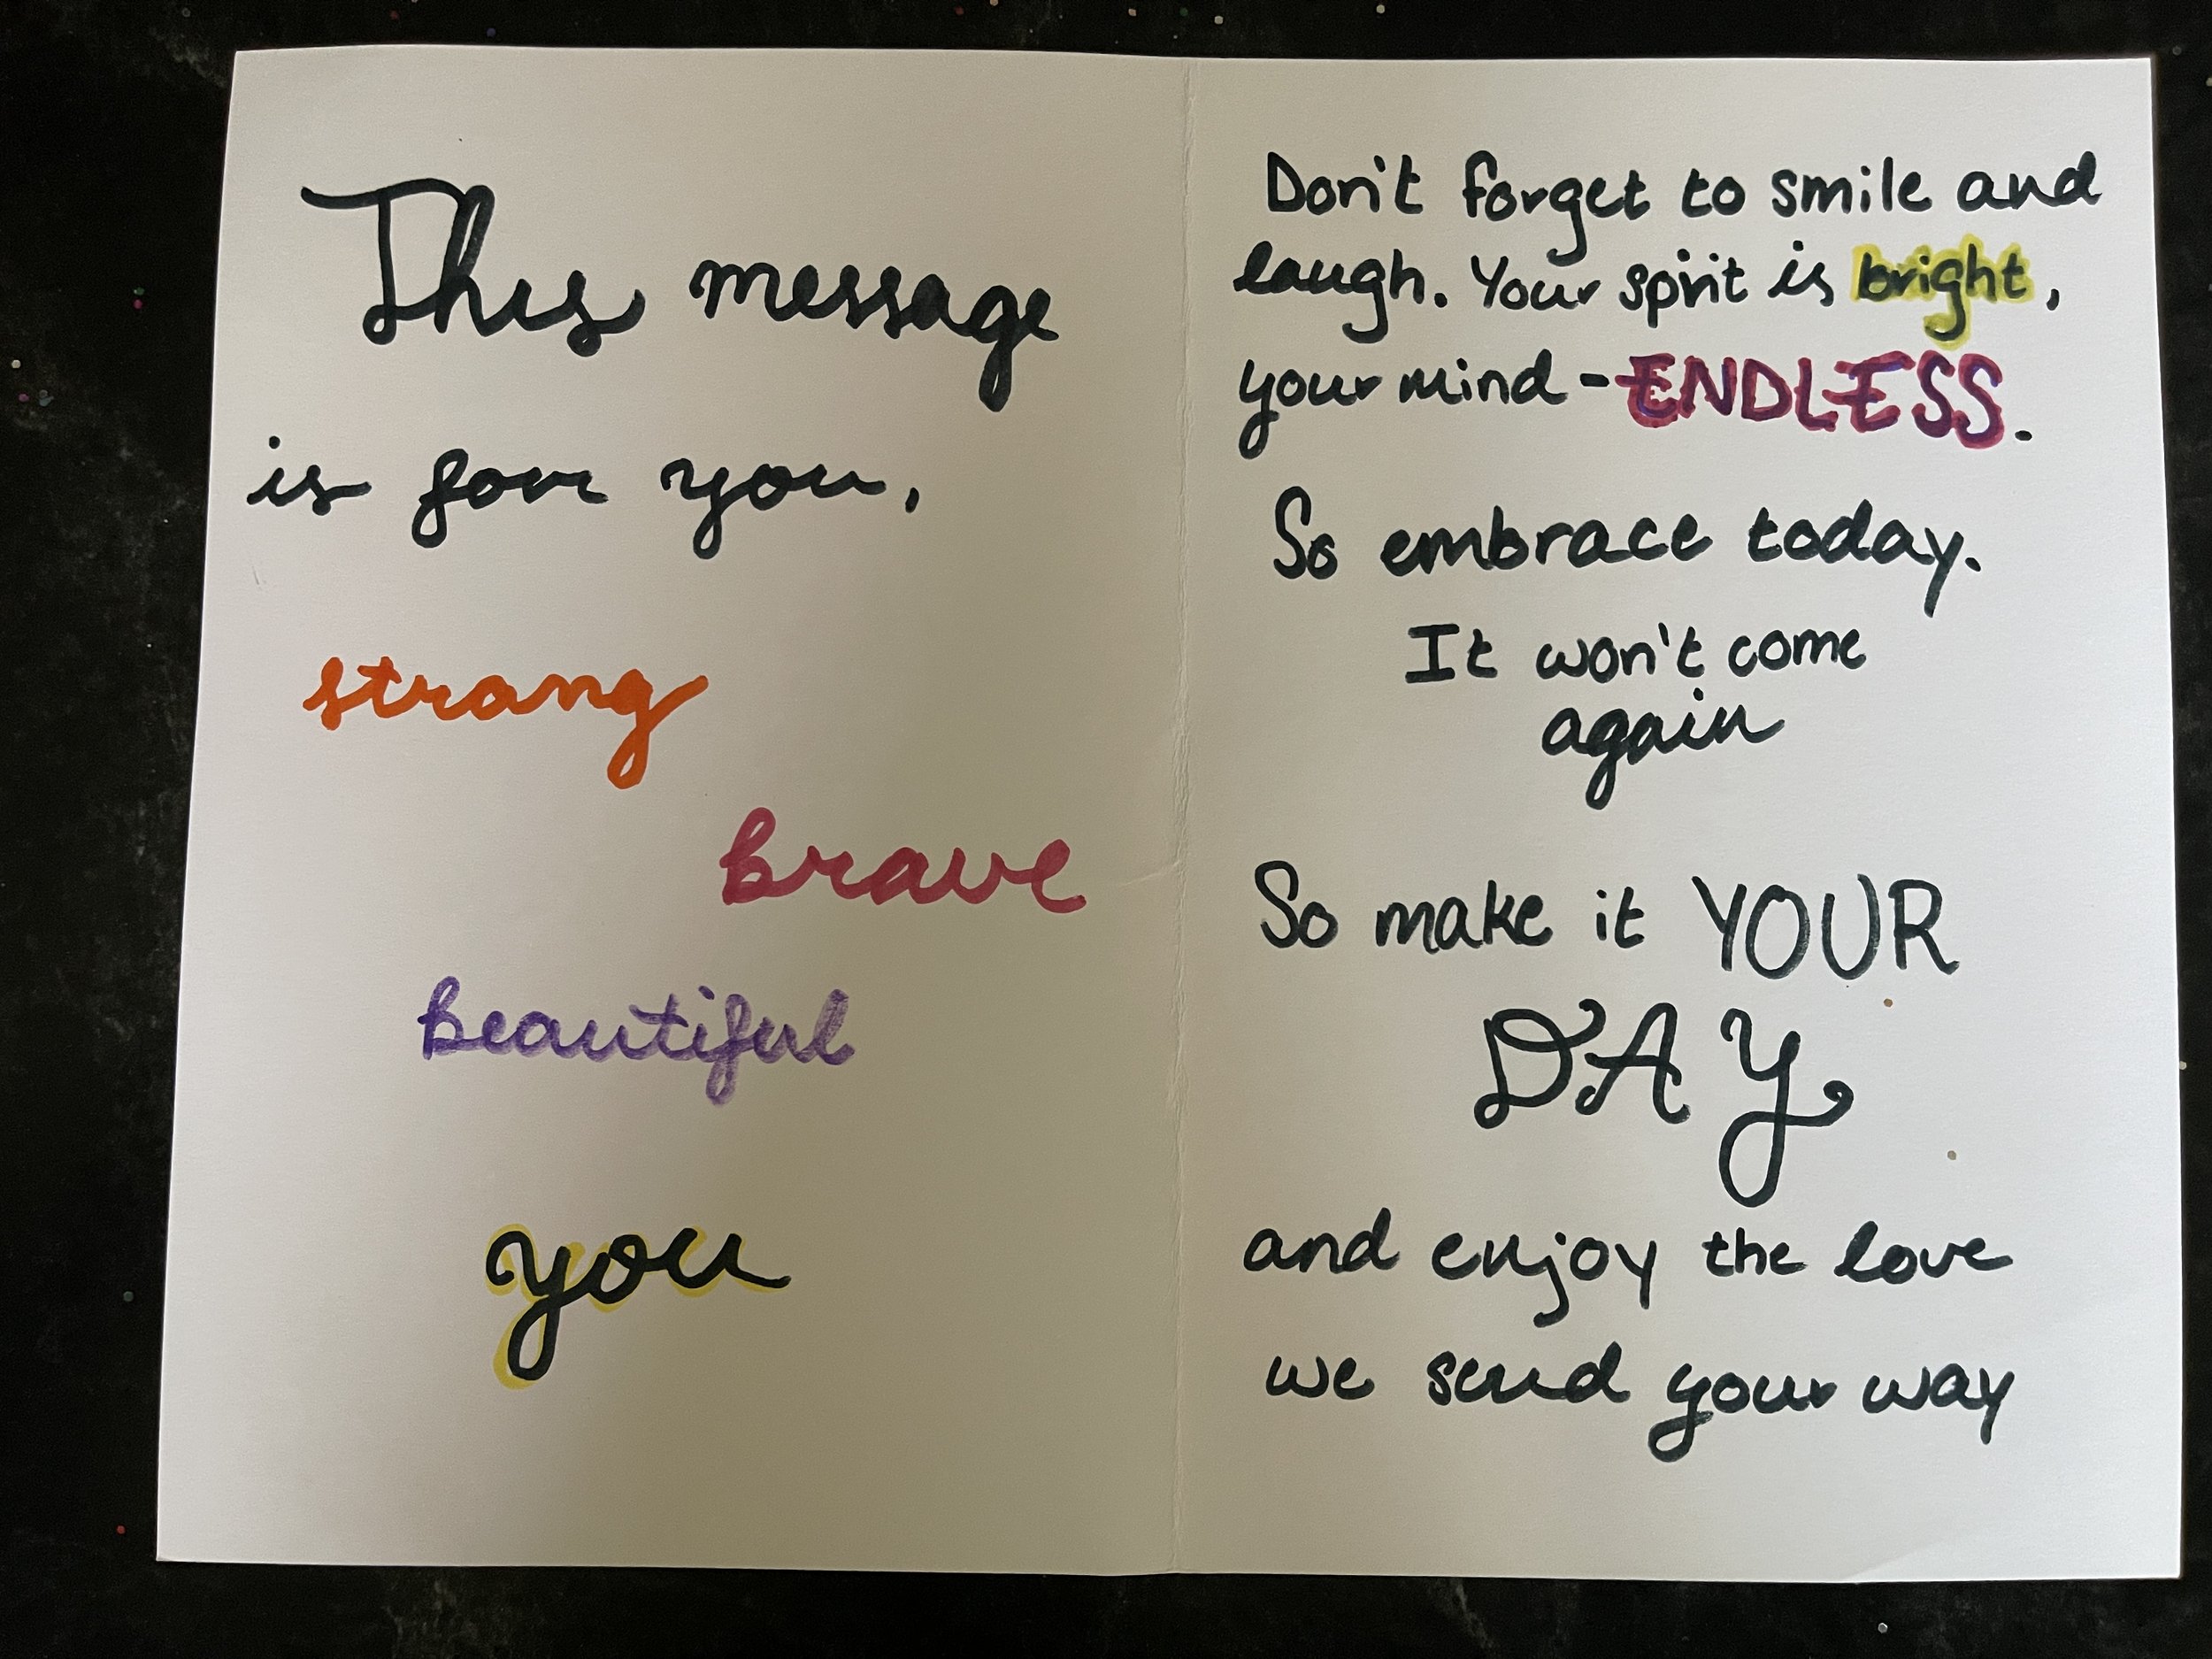 This message
is for you,
strong
brave
beautiful
you
Don't forget to smile and
laugh. Your spirit is bright,
your mind - ENDLESS.
So embrace today.
It won't come
again
So make it YOUR
DAY
and enjoy the love
we send your way